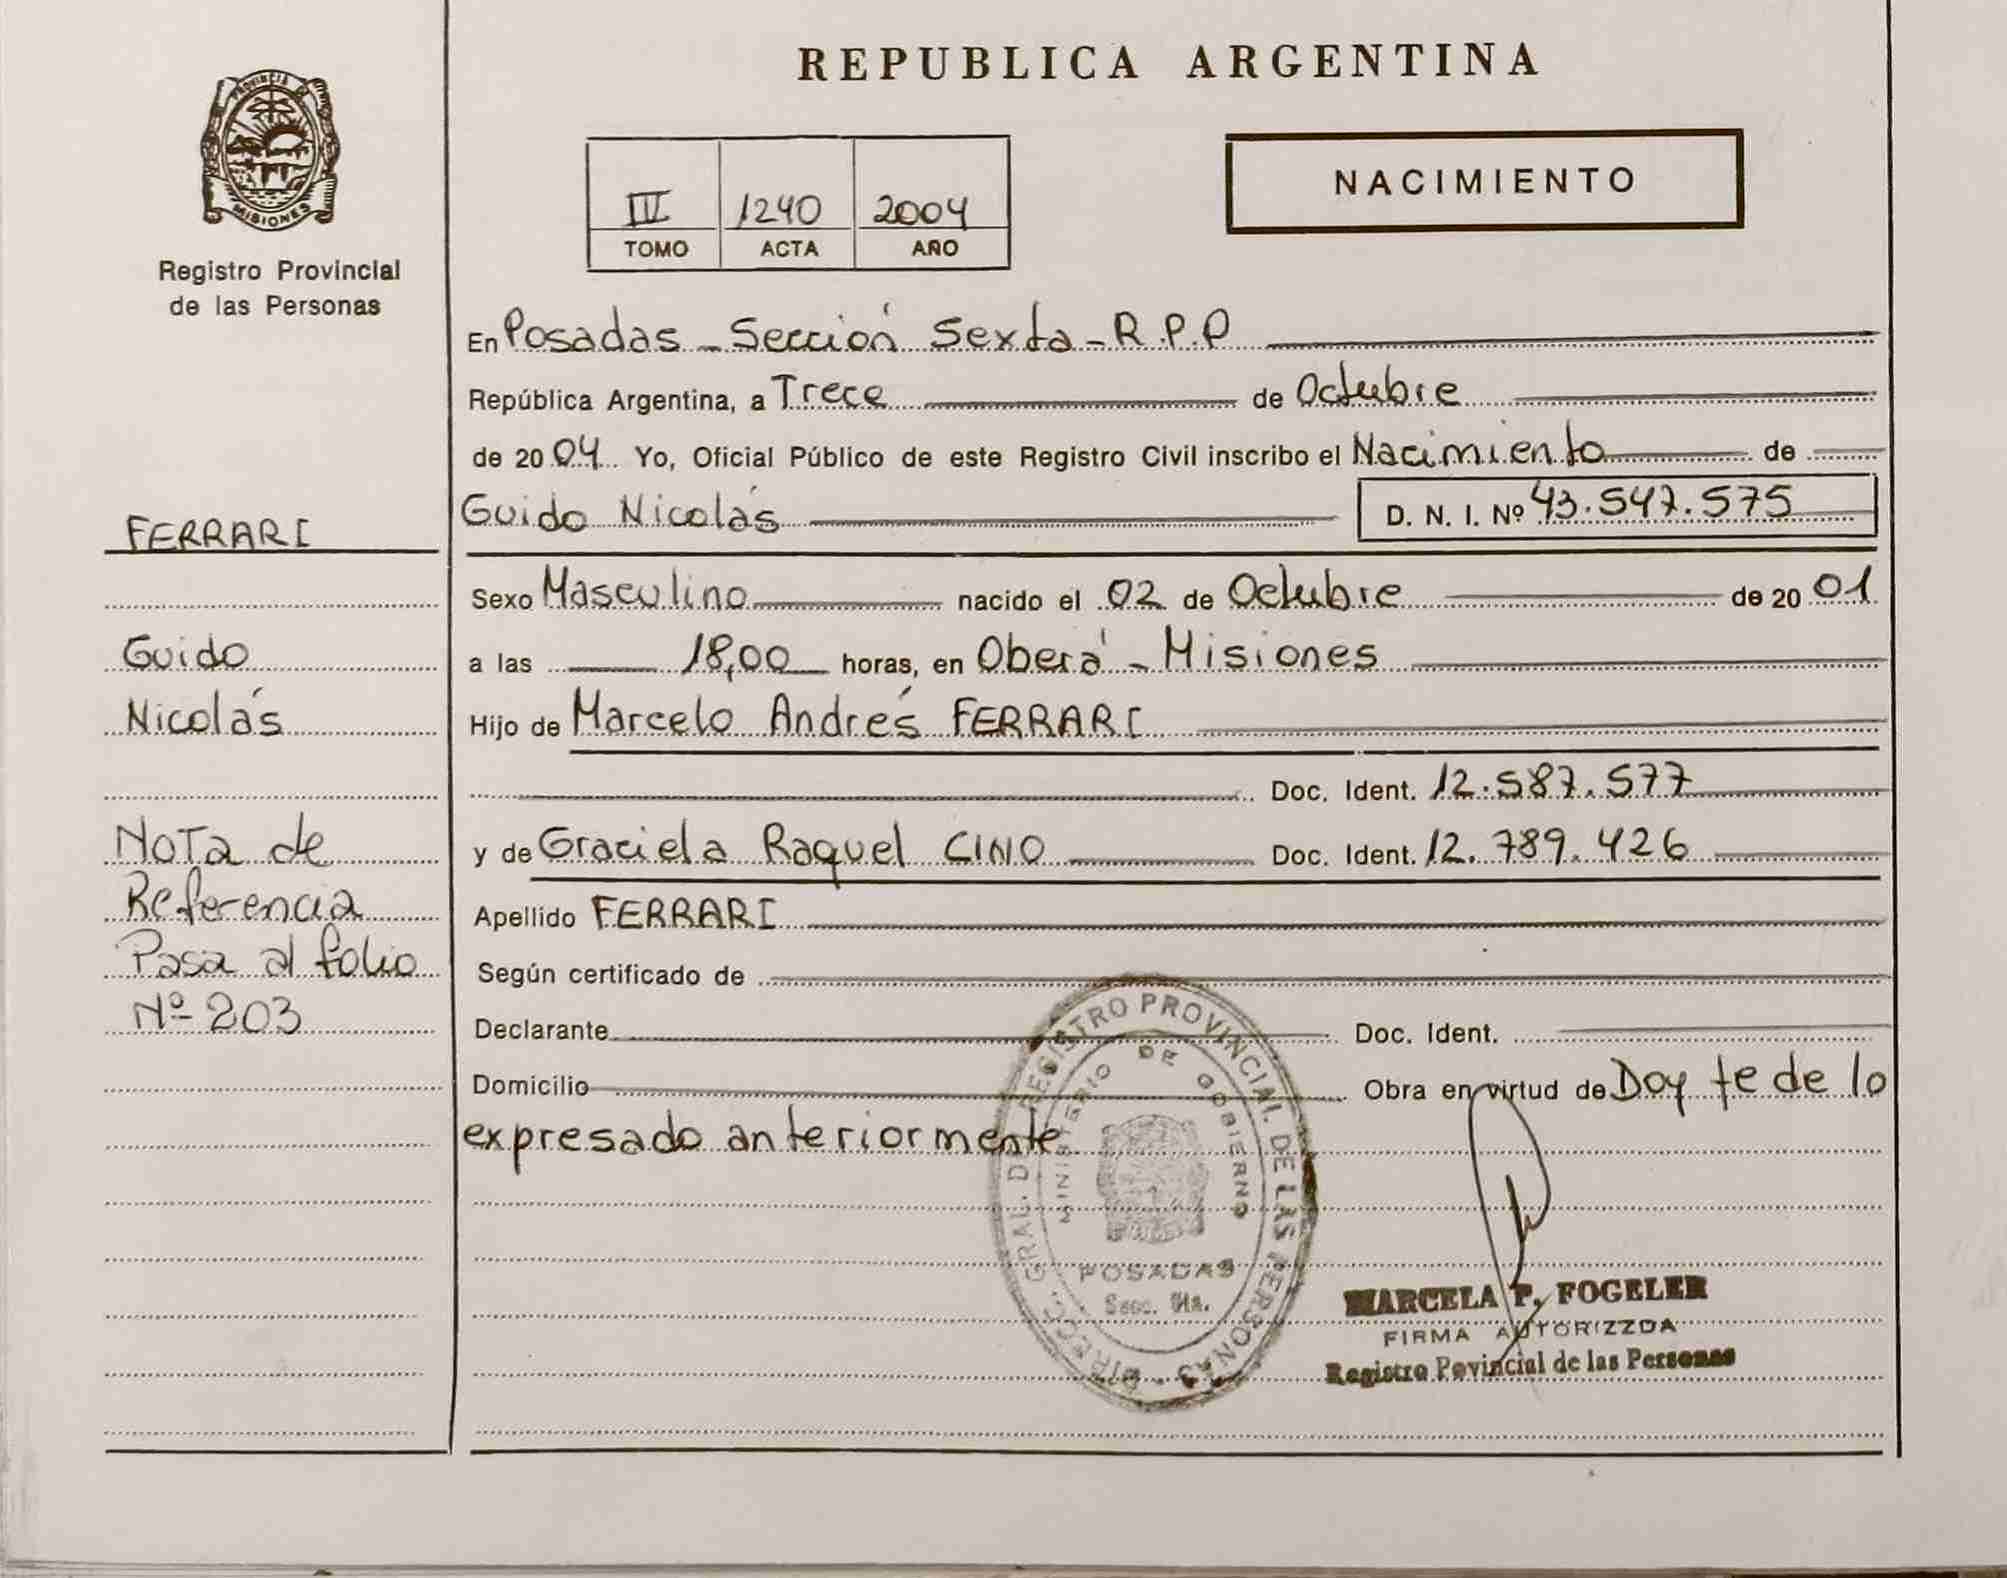 REPUBLICA ARGENTINA
PROVINCIA DE
MISIONES
Registro Provincial
de las Personas
III 1240 2004
TOMO ACTA AÑO
NACIMIENTO
En Posadas - Sección Sexta - R.P.P
República Argentina, a Trece de Octubre
de 2004 Yo, Oficial Público de este Registro Civil inscribo el Nacimiento de
Guido Nicolás D. N. I. Nº 43.547.575
Sexo Masculino nacido el 02 de Octubre de 2001
a las 18,00 horas, en Oberá - Misiones
Hijo de Marcelo Andrés FERRARI
Doc. Ident. 12.587.577
y de Graciela Raquel CINO Doc. Ident. 12.789.426
Apellido FERRARI
Según certificado de
Declarante Doc. Ident.
Domicilio Obra en virtud de Doy fe de lo
expresado anteriormente
FERRARI
Guido
Nicolás
Nota de
Referencia
Pasa al folio
Nº 203
DIRECC. GRAL. DE REGISTRO PROVINCIAL DE LAS PERSONAS
MINISTERIO DE GOBIERNO
POSADAS
Secc. 6ta.
MARCELA P. FOGELER
FIRMA AUTORIZZDA
Registro Povincial de las Personas